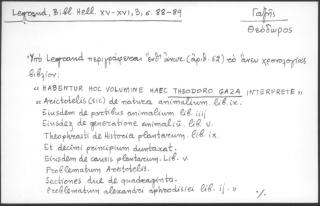 Legrand, Bibl. Hell. XV-XVI, 3, σ. 88-89
Γαζῆς
Θεόδωρος
Ὑπὸ Legrand περιγράφεται ἐνθ' ἄνωτ. (ἀριθ. 62) τὸ ἄνευ χρονολογίας
βιβλίον:
"HABENTUR HOC VOLUMINE HAEC THEODORO GAZA INTERPRETE"
"Aristotelis (sic) de natura animalium. lib. ix.
Eiusdem de partibus animalium lib. iiij
Eiusdez de generatione animaliū. lib. v.
Theophrasti de Historia plantarum. lib. ix.
Et decimi principium duntaxat.
Eiusdem de causis plantarum. Lib. v.
Problematum Aristotelis.
Sectiones due de quadraginta.
Problematum alexandri aphrodissei lib. ij."
./.